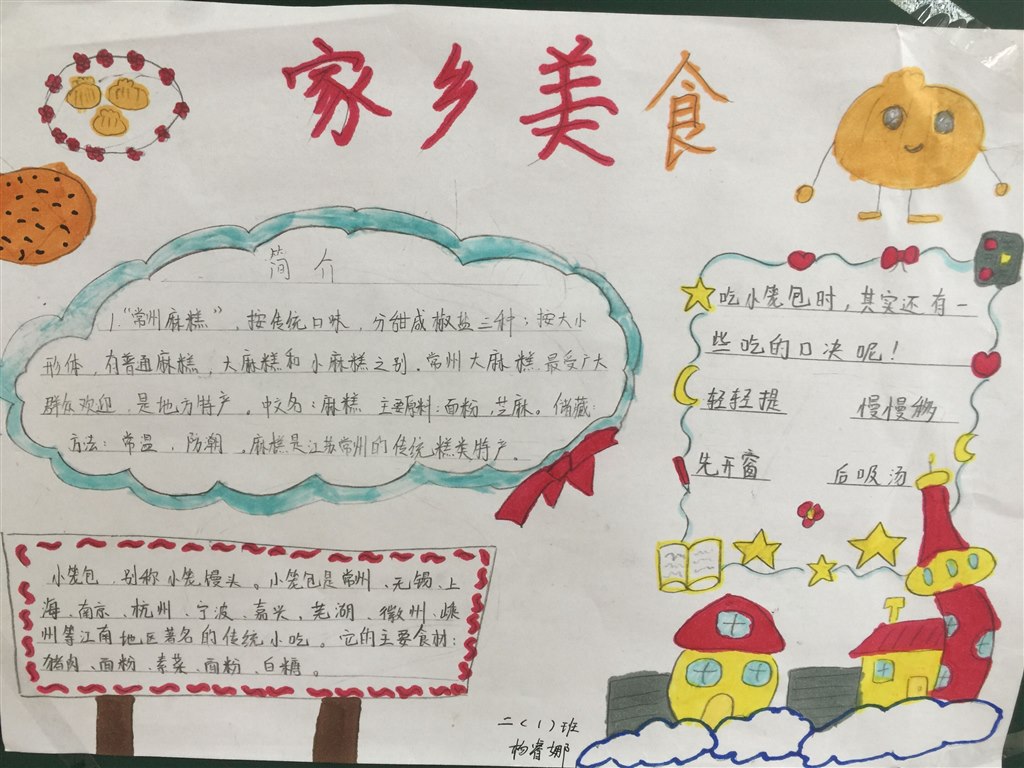 家乡美食
简介
1."常州麻糕",按传统口味,分甜咸椒盐三种;按大小
形体,有普通麻糕,大麻糕和小麻糕之别.常州大麻糕最受广大
群众欢迎,是地方特产。中文名:麻糕 主要原料:面粉,芝麻。储藏
方法:常温,防潮。麻糕是江苏常州的传统糕类特产。
吃小笼包时,其实还有一
些吃的口决呢!
轻轻提 慢慢移
先开窗 后吸汤
小笼包,别称小笼馒头。小笼包是常州、无锡、上
海、南京、杭州、宁波、嘉兴、芜湖、徽州、嵊
州等江南地区著名的传统小吃。它的主要食材:
猪肉、面粉、素菜、面粉、白糖。
二(1)班
杨睿娜